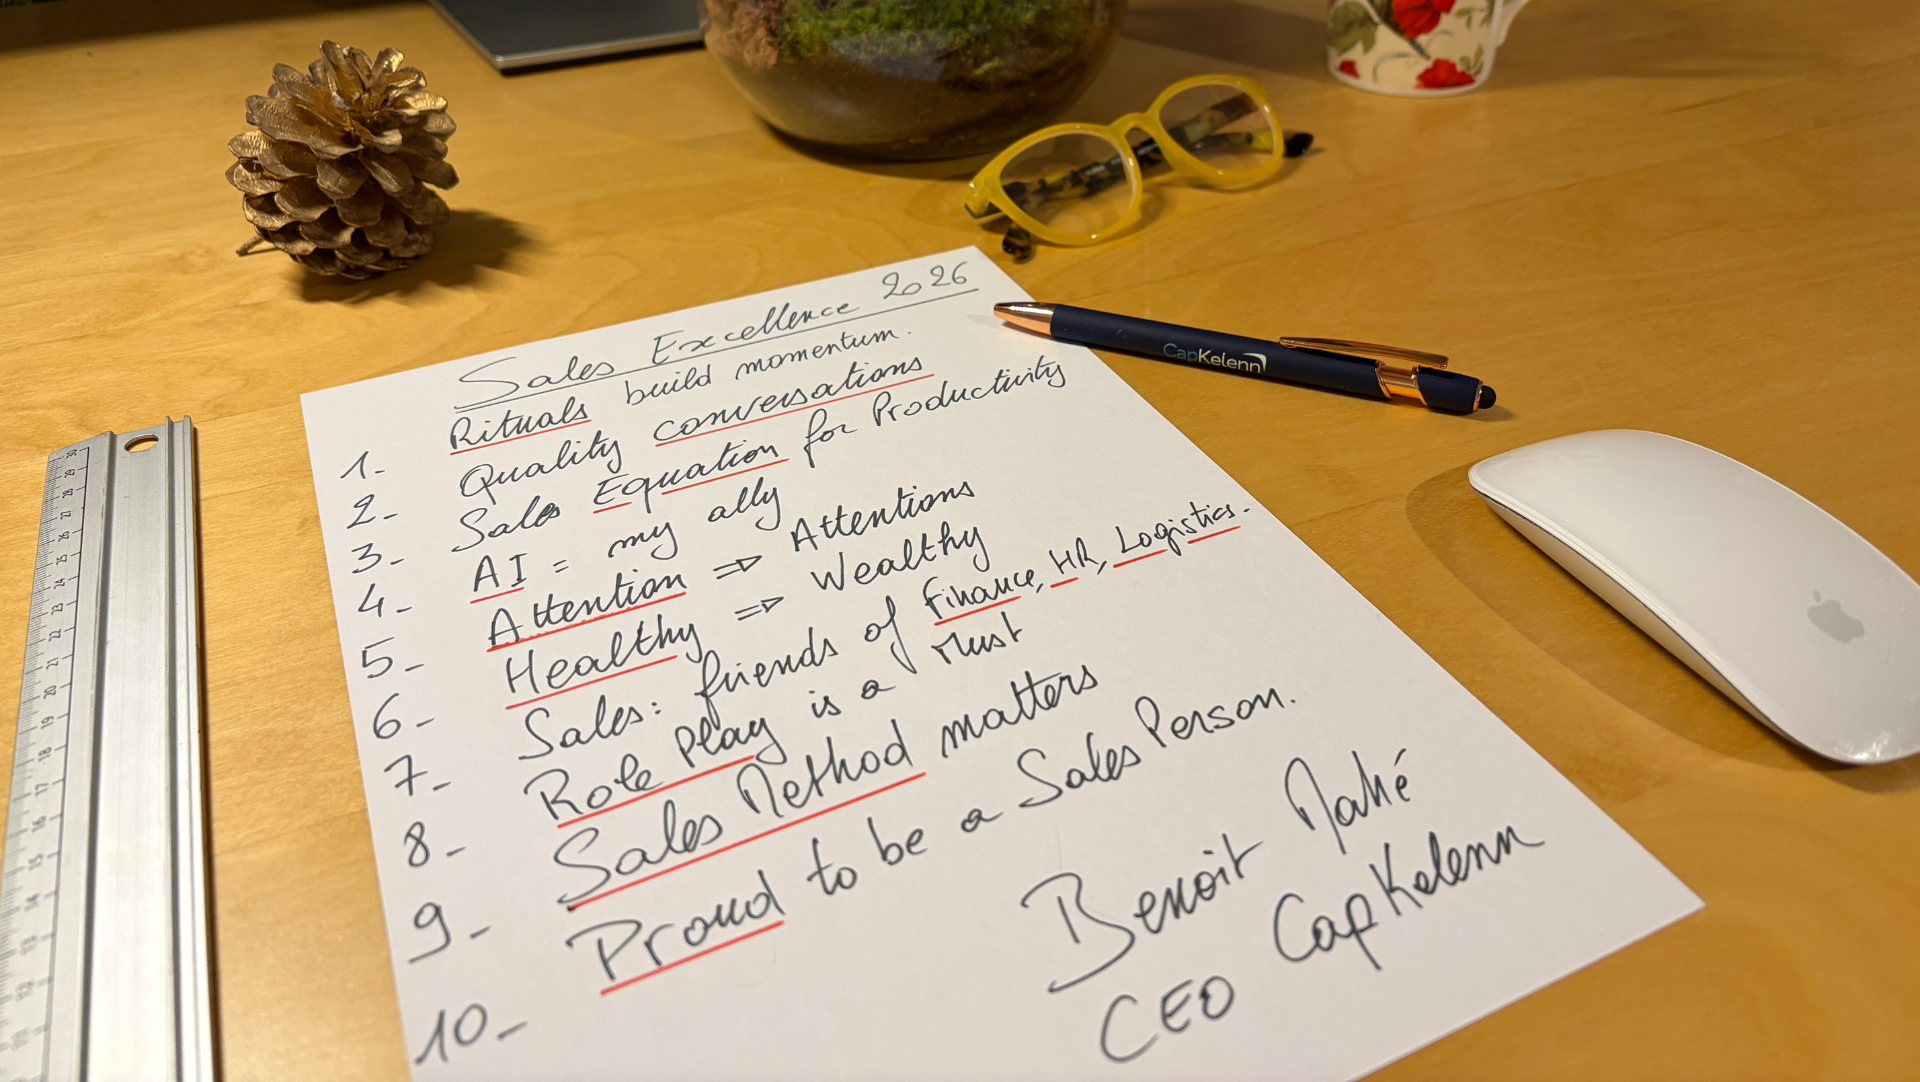 Sales Excellence 2026
1- Rituals build momentum.
2- Quality conversations
3- Sales Equation for Productivity
4- AI = my ally
5- Attention => Attentions
6- Healthy => Wealthy
7- Sales: friends of Finance, HR, Logistics.
8- Role Play is a Must
9- Sales Method matters
10- Proud to be a Sales Person.
Benoit Mahé
CEO CapKelenn
CapKelenn